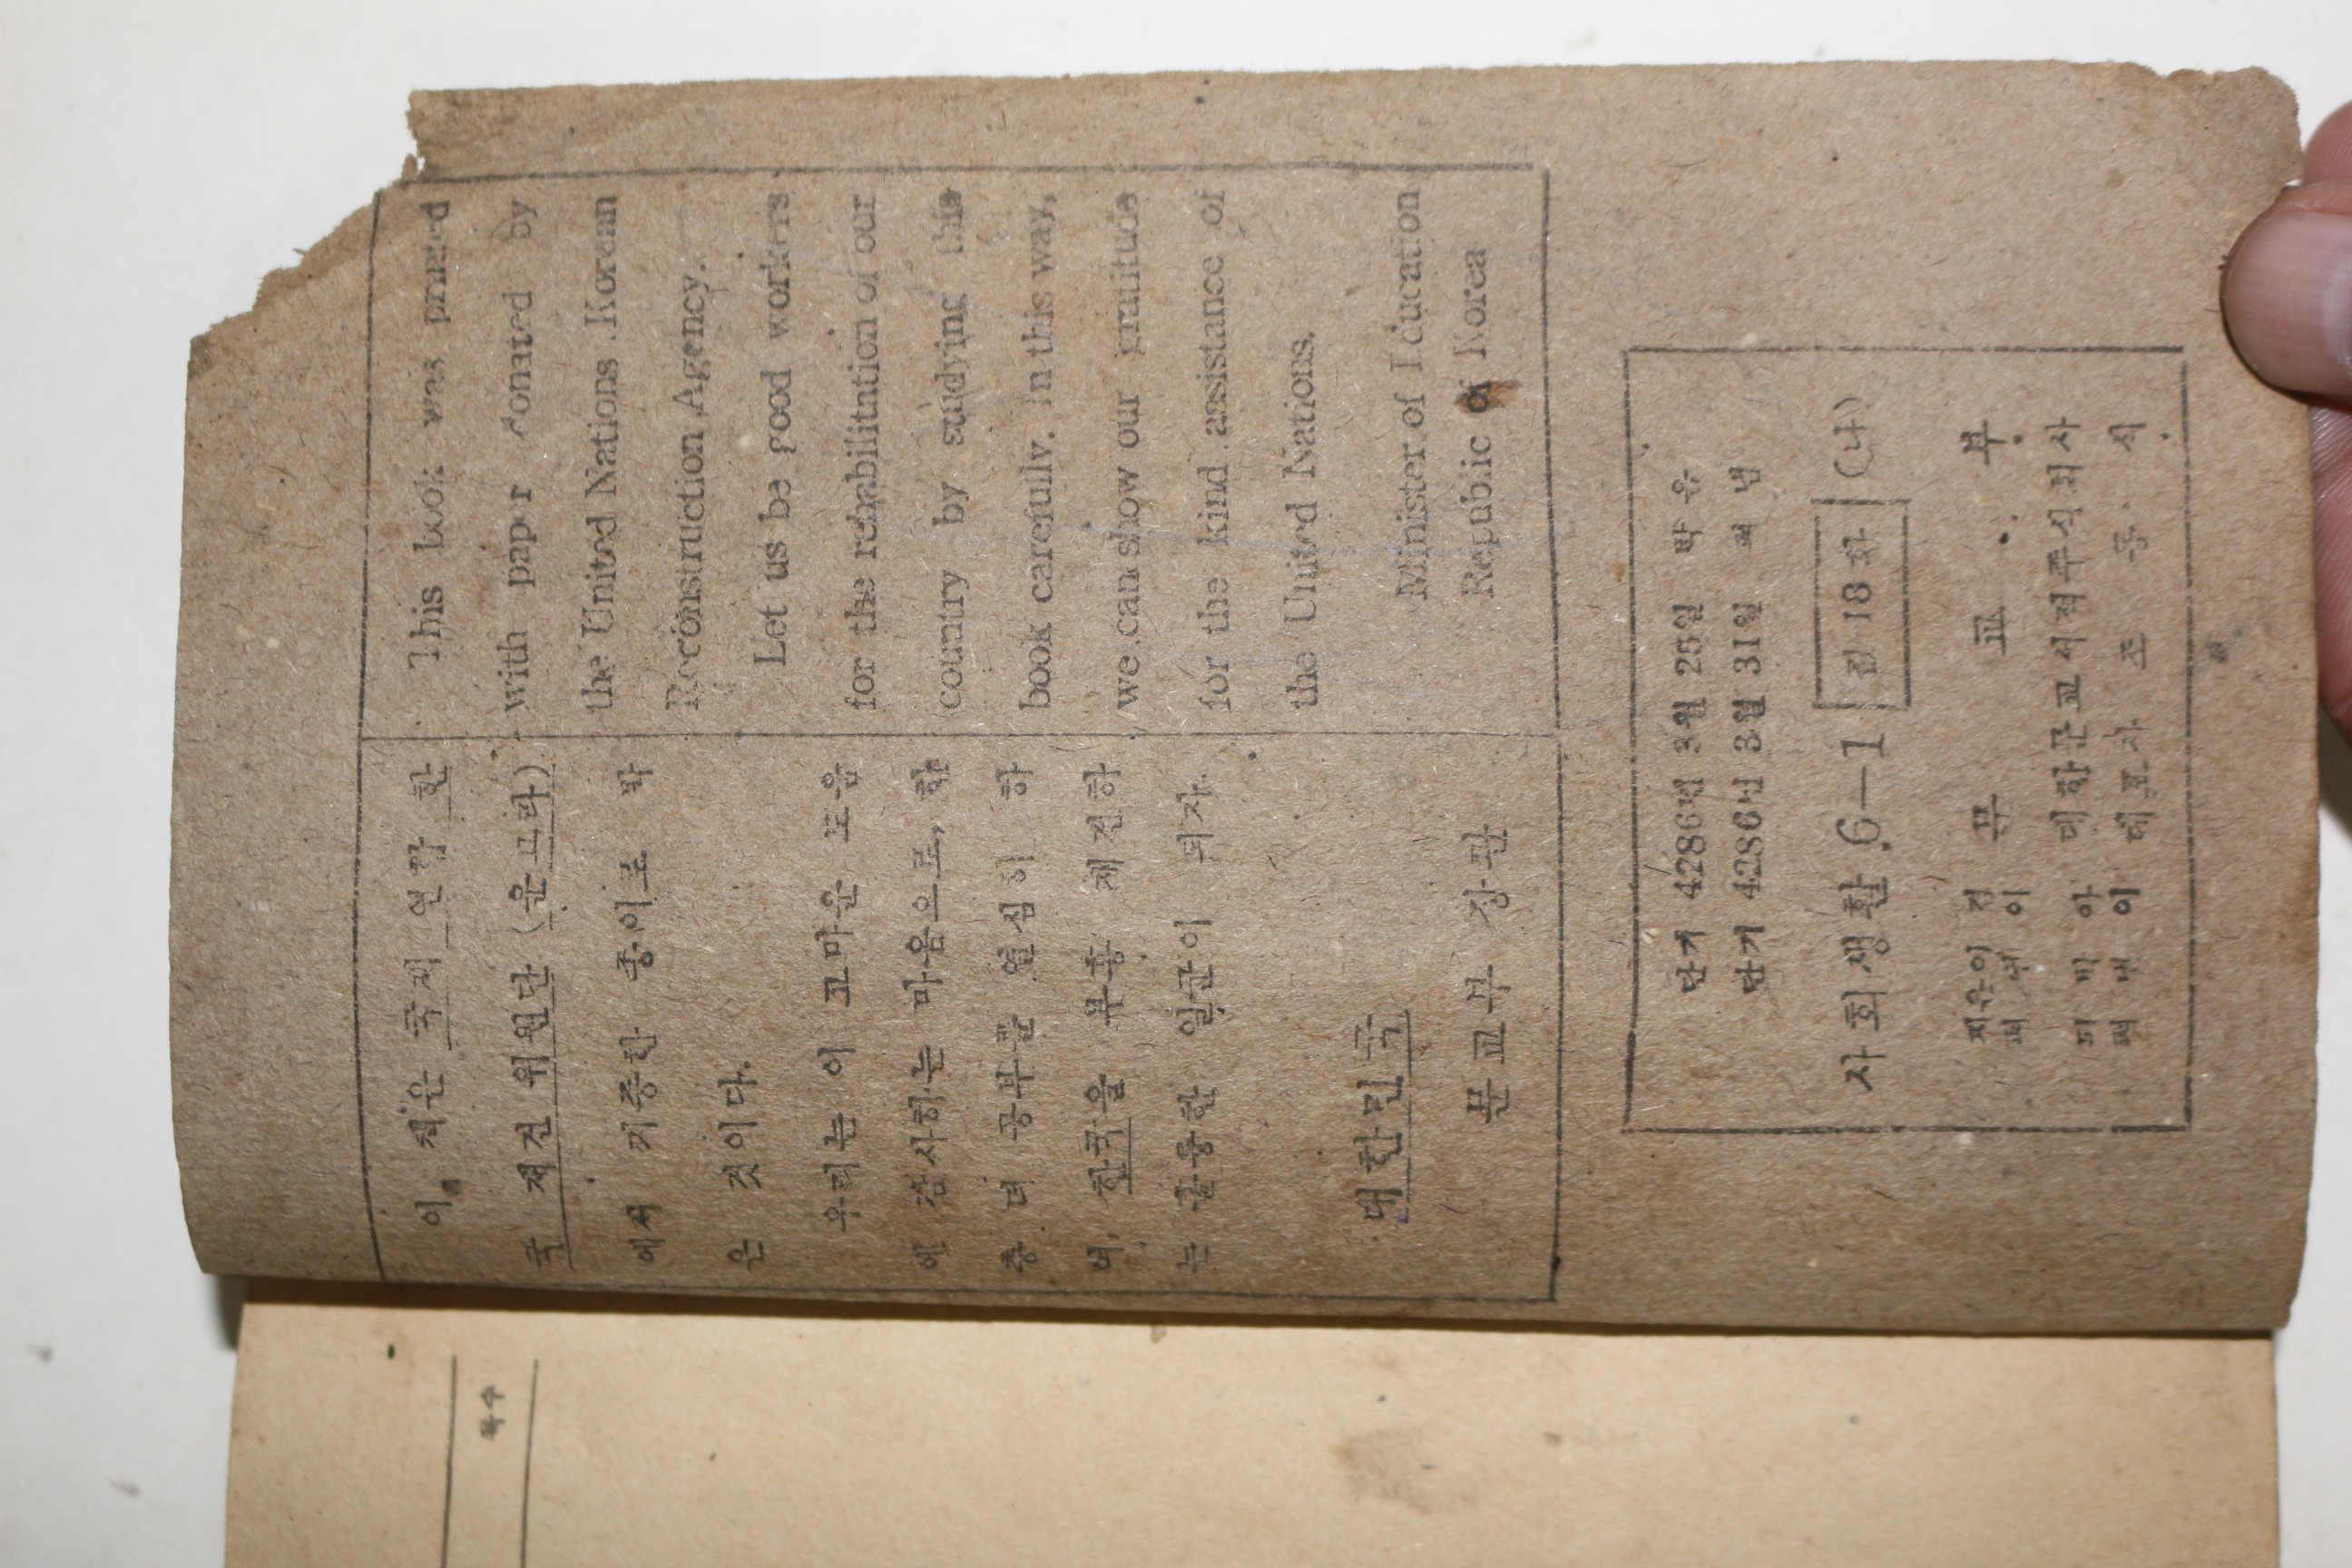 이 책은 국제 연합 한
국 재건 위원단 (운끄라)
에서 기증한 종이로 박
은 것이다.
우리는 이 고마운 도움
에 감사하는 마음으로, 한
층 더 공부를 열심히 하
여, 한국을 부흥 재건하
는 훌륭한 일군이 되자.
대한민국
문교부 장관
This book was printed
with paper donated by
the United Nations Korean
Reconstruction Agency.
Let us be good workers
for the rehabilitation of our
country by studying this
book carefully. In this way,
we can show our gratitude
for the kind assistance of
the United Nations.
Minister of Education
Republic of Korea
단기 4286년 3월 25일 박음
단기 4286년 3월 31일 펴냄
사회생활 6—1 검 18 (나)
지은이 겸
펴낸 이 문교부
박아
펴낸 이 대한문교서적주식회사
대표자 조 동 식